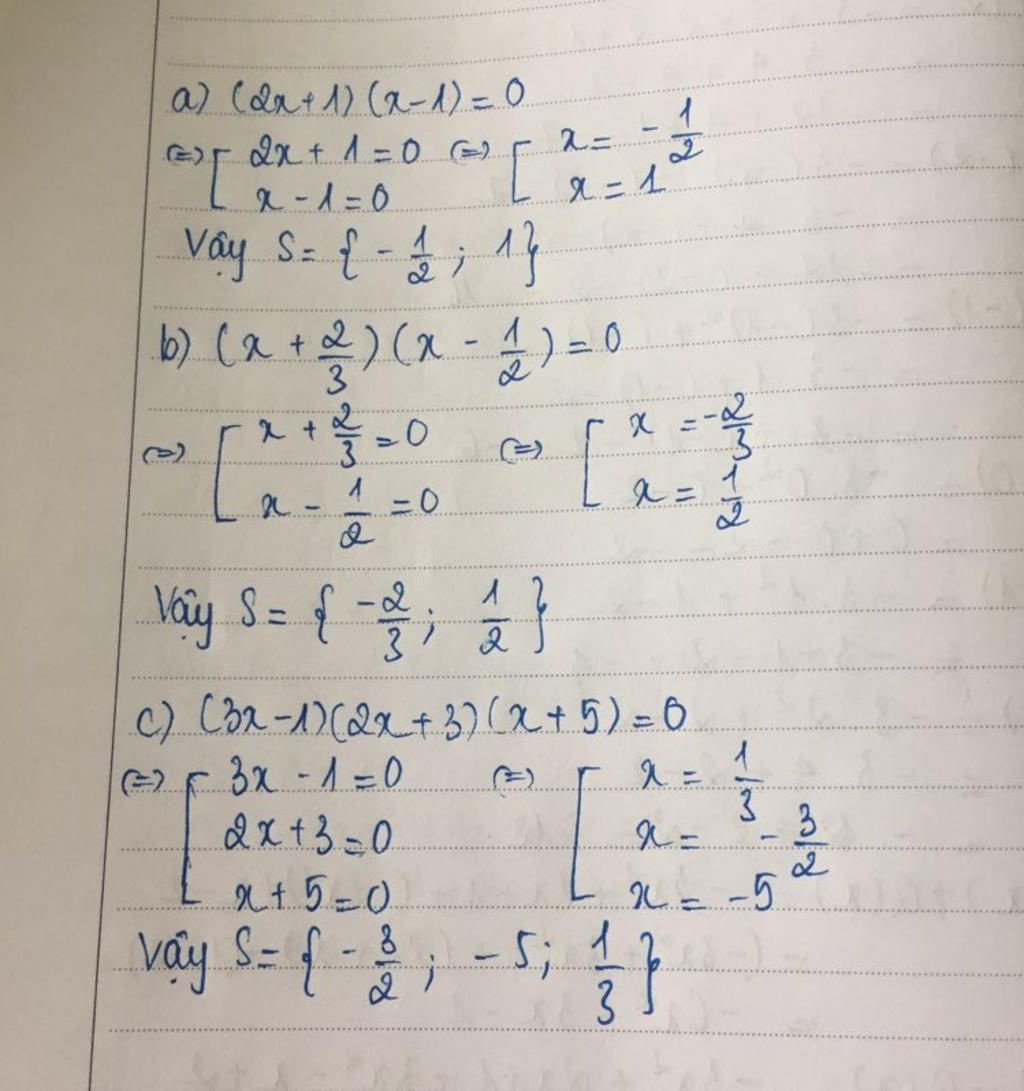 a) (2x+1)(x-1)=0
(=) [ 2x+1=0 (=) [ x= -1/2
x-1=0 x=1
Vậy S={-1/2; 1}
b) (x+2/3)(x-1/2)=0
(=) [ x+2/3=0 (=) [ x=-2/3
x-1/2=0 x=1/2
Vậy S={-2/3; 1/2}
c) (3x-1)(2x+3)(x+5)=0
(=) [ 3x-1=0 (=) [ x=1/3
2x+3=0 x=-3/2
x+5=0 x=-5
Vậy S={-3/2; -5; 1/3}